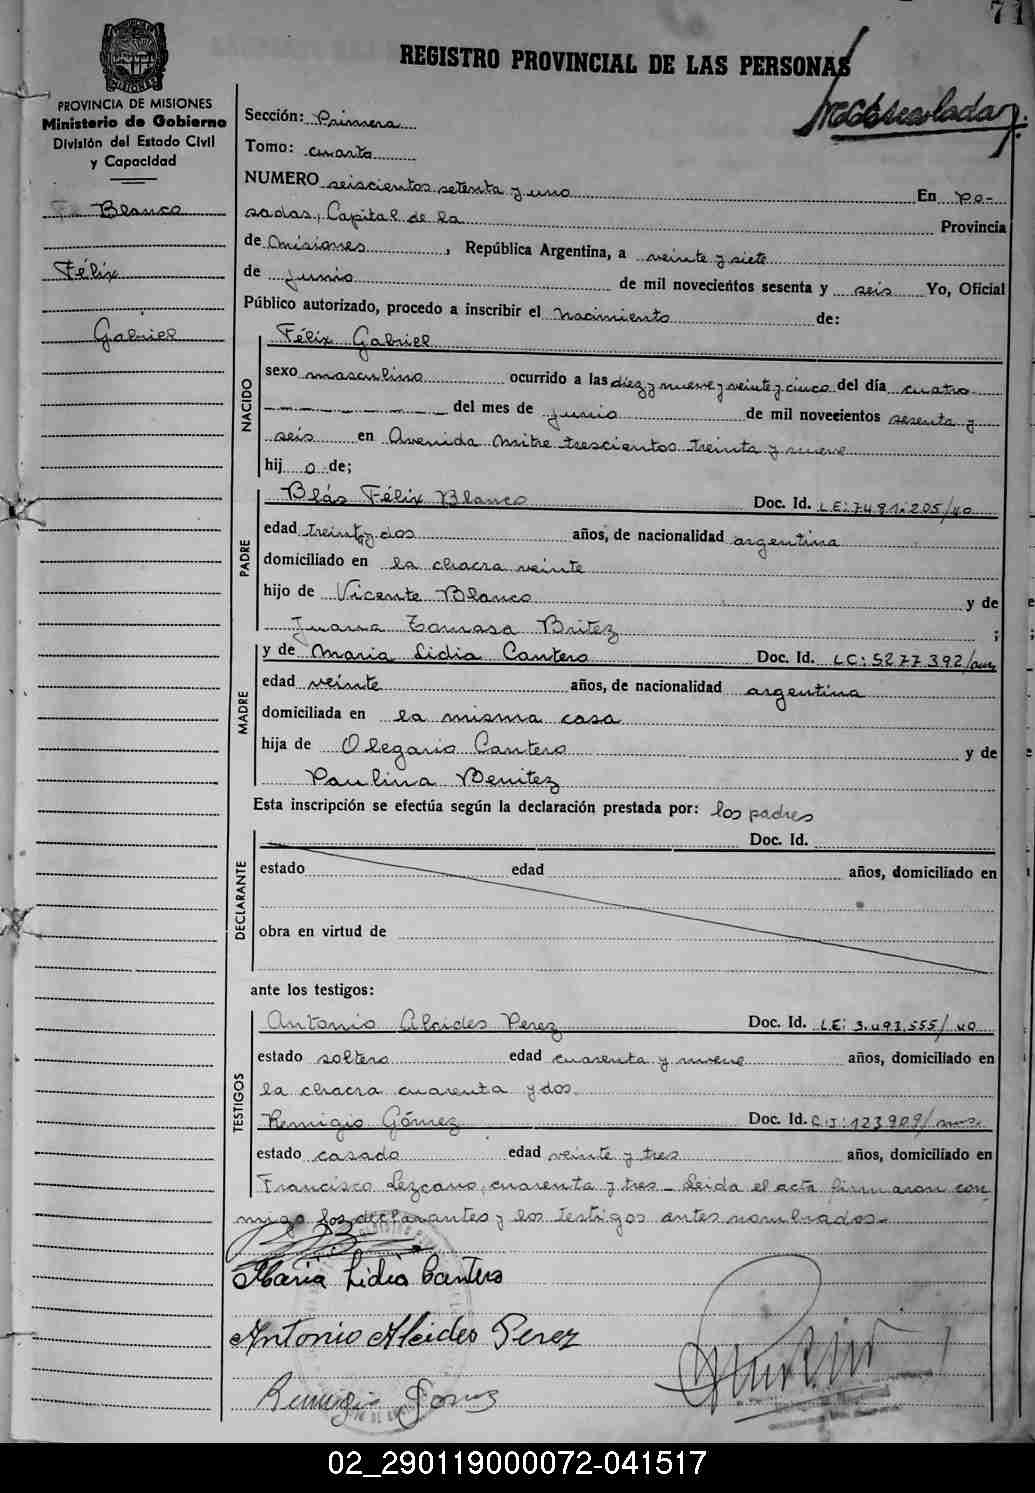 71
REGISTRO PROVINCIAL DE LAS PERSONAS
PROVINCIA DE MISIONES
Ministerio de Gobierno
División del Estado Civil
y Capacidad
Blanco
Félix
Gabriel
Sección: Primera
Tomo: cuarto
NUMERO seiscientos setenta y uno En Po-
sadas, Capital de la Provincia
de Misiones, República Argentina, a veinte y siete
de junio de mil novecientos sesenta y seis Yo, Oficial
Público autorizado, procedo a inscribir el nacimiento de:
NACIDO
Félix Gabriel
sexo masculino ocurrido a las diez y nueve y veinte y cinco del día cuatro
del mes de junio de mil novecientos sesenta y
seis en Avenida Mitre trescientos treinta y nueve
hijo de;
PADRE
Blás Félix Blanco Doc. Id. LE: 7481.205/40
edad treinta y dos años, de nacionalidad argentina
domiciliado en la chacra veinte
hijo de Vicente Blanco y de
Juana Tomasa Britez ;
MADRE
y de Maria Lidia Cantero Doc. Id. LC: 5277392/
edad veinte años, de nacionalidad argentina
domiciliada en la misma casa
hija de Olegario Cantero y de
Paulina Benitez
Esta inscripción se efectúa según la declaración prestada por: los padres
DECLARANTE
Doc. Id.
estado edad años, domiciliado en
obra en virtud de
ante los testigos:
TESTIGOS
Antonio Alcides Perez Doc. Id. LE: 3.493.555/40
estado soltero edad cuarenta y nueve años, domiciliado en
la chacra cuarenta y dos.
Remigio Gómez Doc. Id. C.I: 123909/
estado casado edad veinte y tres años, domiciliado en
Francisco Lezcano, cuarenta y tres_ Leida el acta firmaron con
migo los declarantes y los testigos antes nombrados.-
Maria Lidia Cantero
Antonio Alcides Perez
Remigio Gomez
02_290119000072-041517